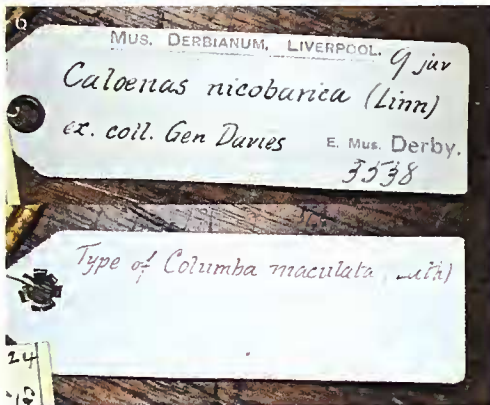 MUS. DERBIANUM, LIVERPOOL. 9 juv
Caloenas nicobarica (Linn)
ex. coll. Gen Davies E. Mus. Derby.
3538
Type of Columba maculata
24